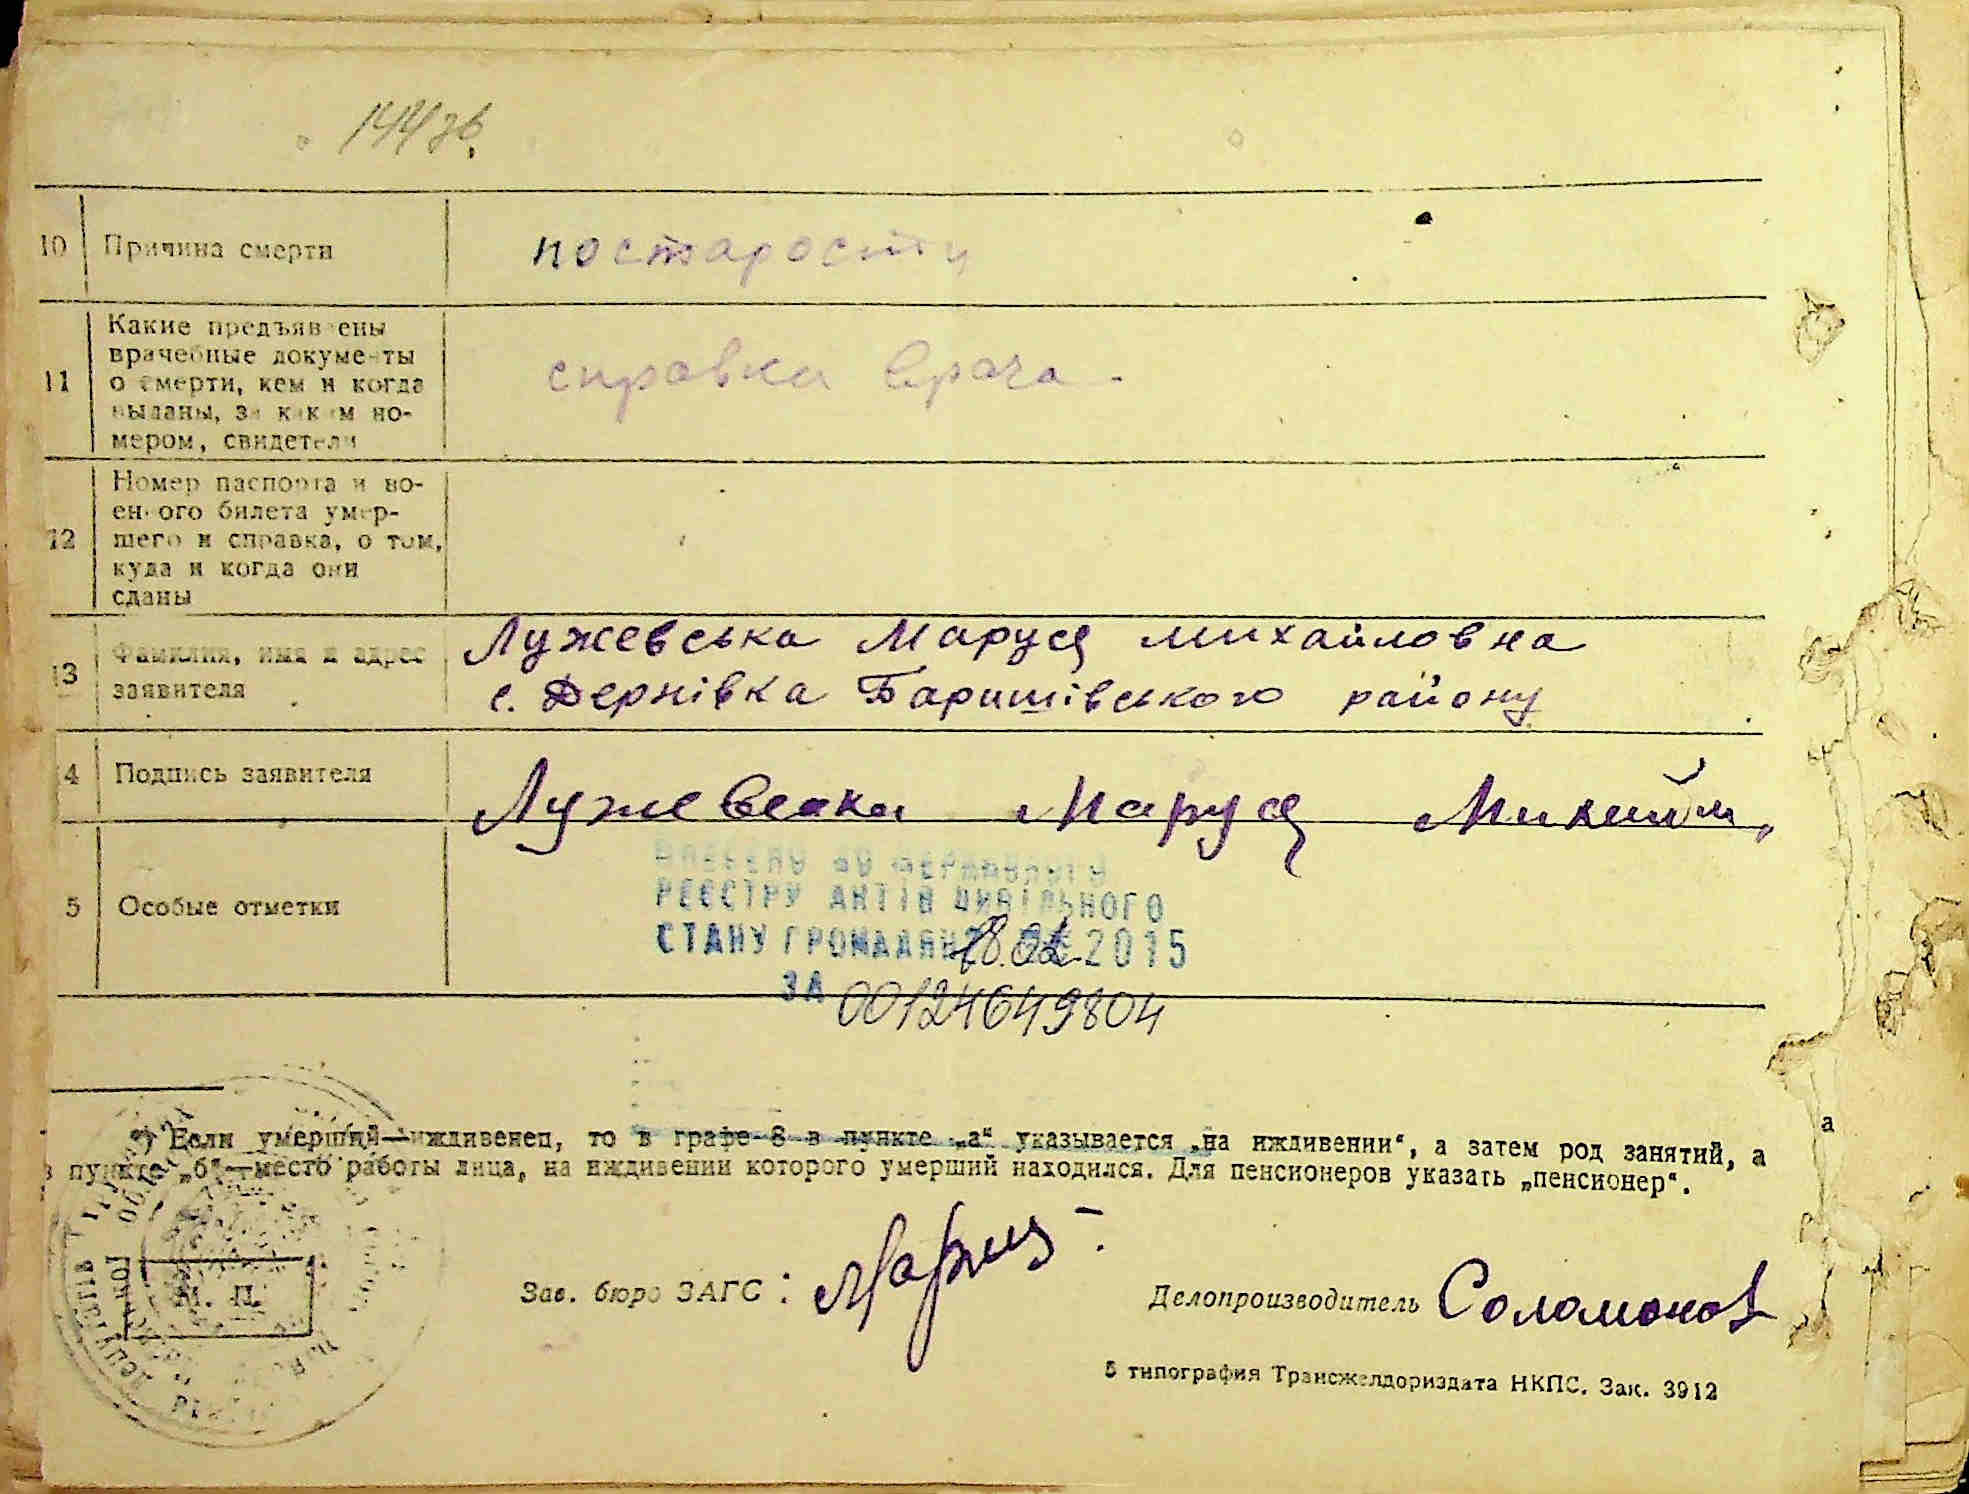 144зв.
10 Причина смерти
по старости
11 Какие предъявлены
врачебные документы
о смерти, кем и когда
выданы, за каким но-
мером, свидетели
справка врача -
12 Номер паспорта и во-
енного билета умер-
шего и справка, о том,
куда и когда они
сданы
13 Фамилия, имя и адрес
заявителя
Лужевська Маруся михайловна
с. Дернівка Баришівського району
4 Подпись заявителя
Лужевська Маруся Михайл,
5 Особые отметки
ВНЕСЕНО ДО ДЕРЖАВНОГО
РЕЄСТРУ АКТІВ ЦИВІЛЬНОГО
СТАНУ ГРОМАДЯН 18.02.2015
ЗА 00124649804
*) Если умерший—иждивенец, то в графе 8 в пункте „а“ указывается „на иждивении“, а затем род занятий, а
в пункте „б“—место работы лица, на иждивении которого умерший находился. Для пенсионеров указать „пенсионер“.
М. П.
Зав. бюро ЗАГС:
Делопроизводитель Соломонов
5 типография Трансжелдориздата НКПС. Зак. 3912
а